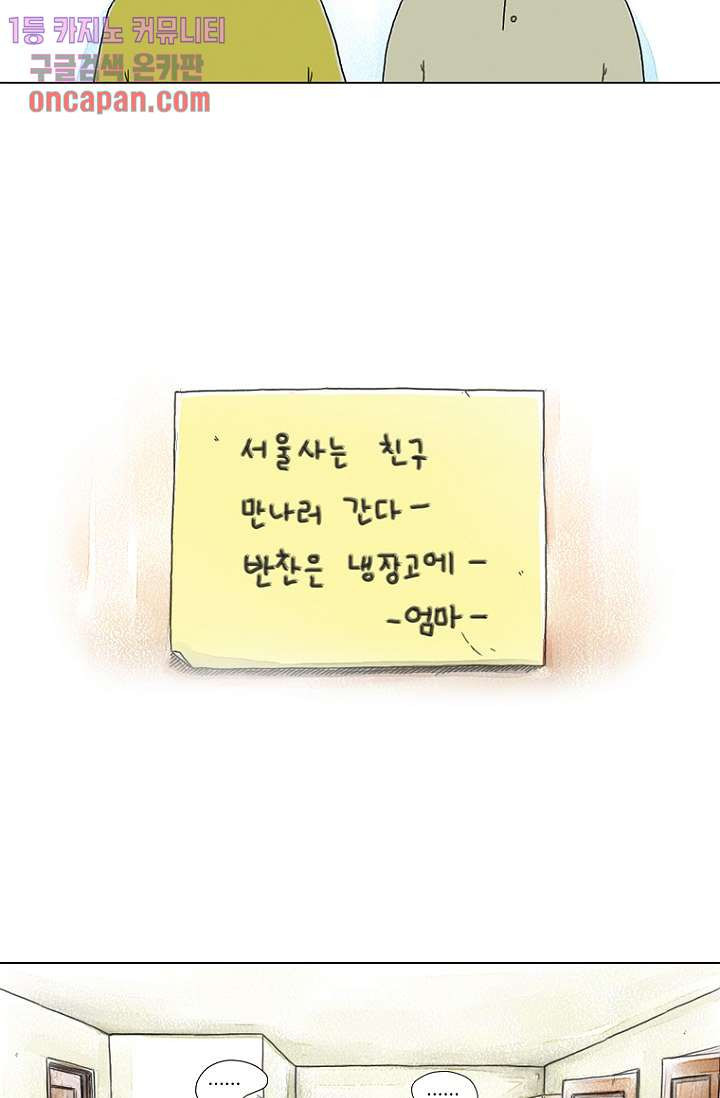 1등 카지노 커뮤니티
구글검색 온카판
oncapan.com
서울사는 친구
만나러 간다-
반찬은 냉장고에-
-엄마-
......
......